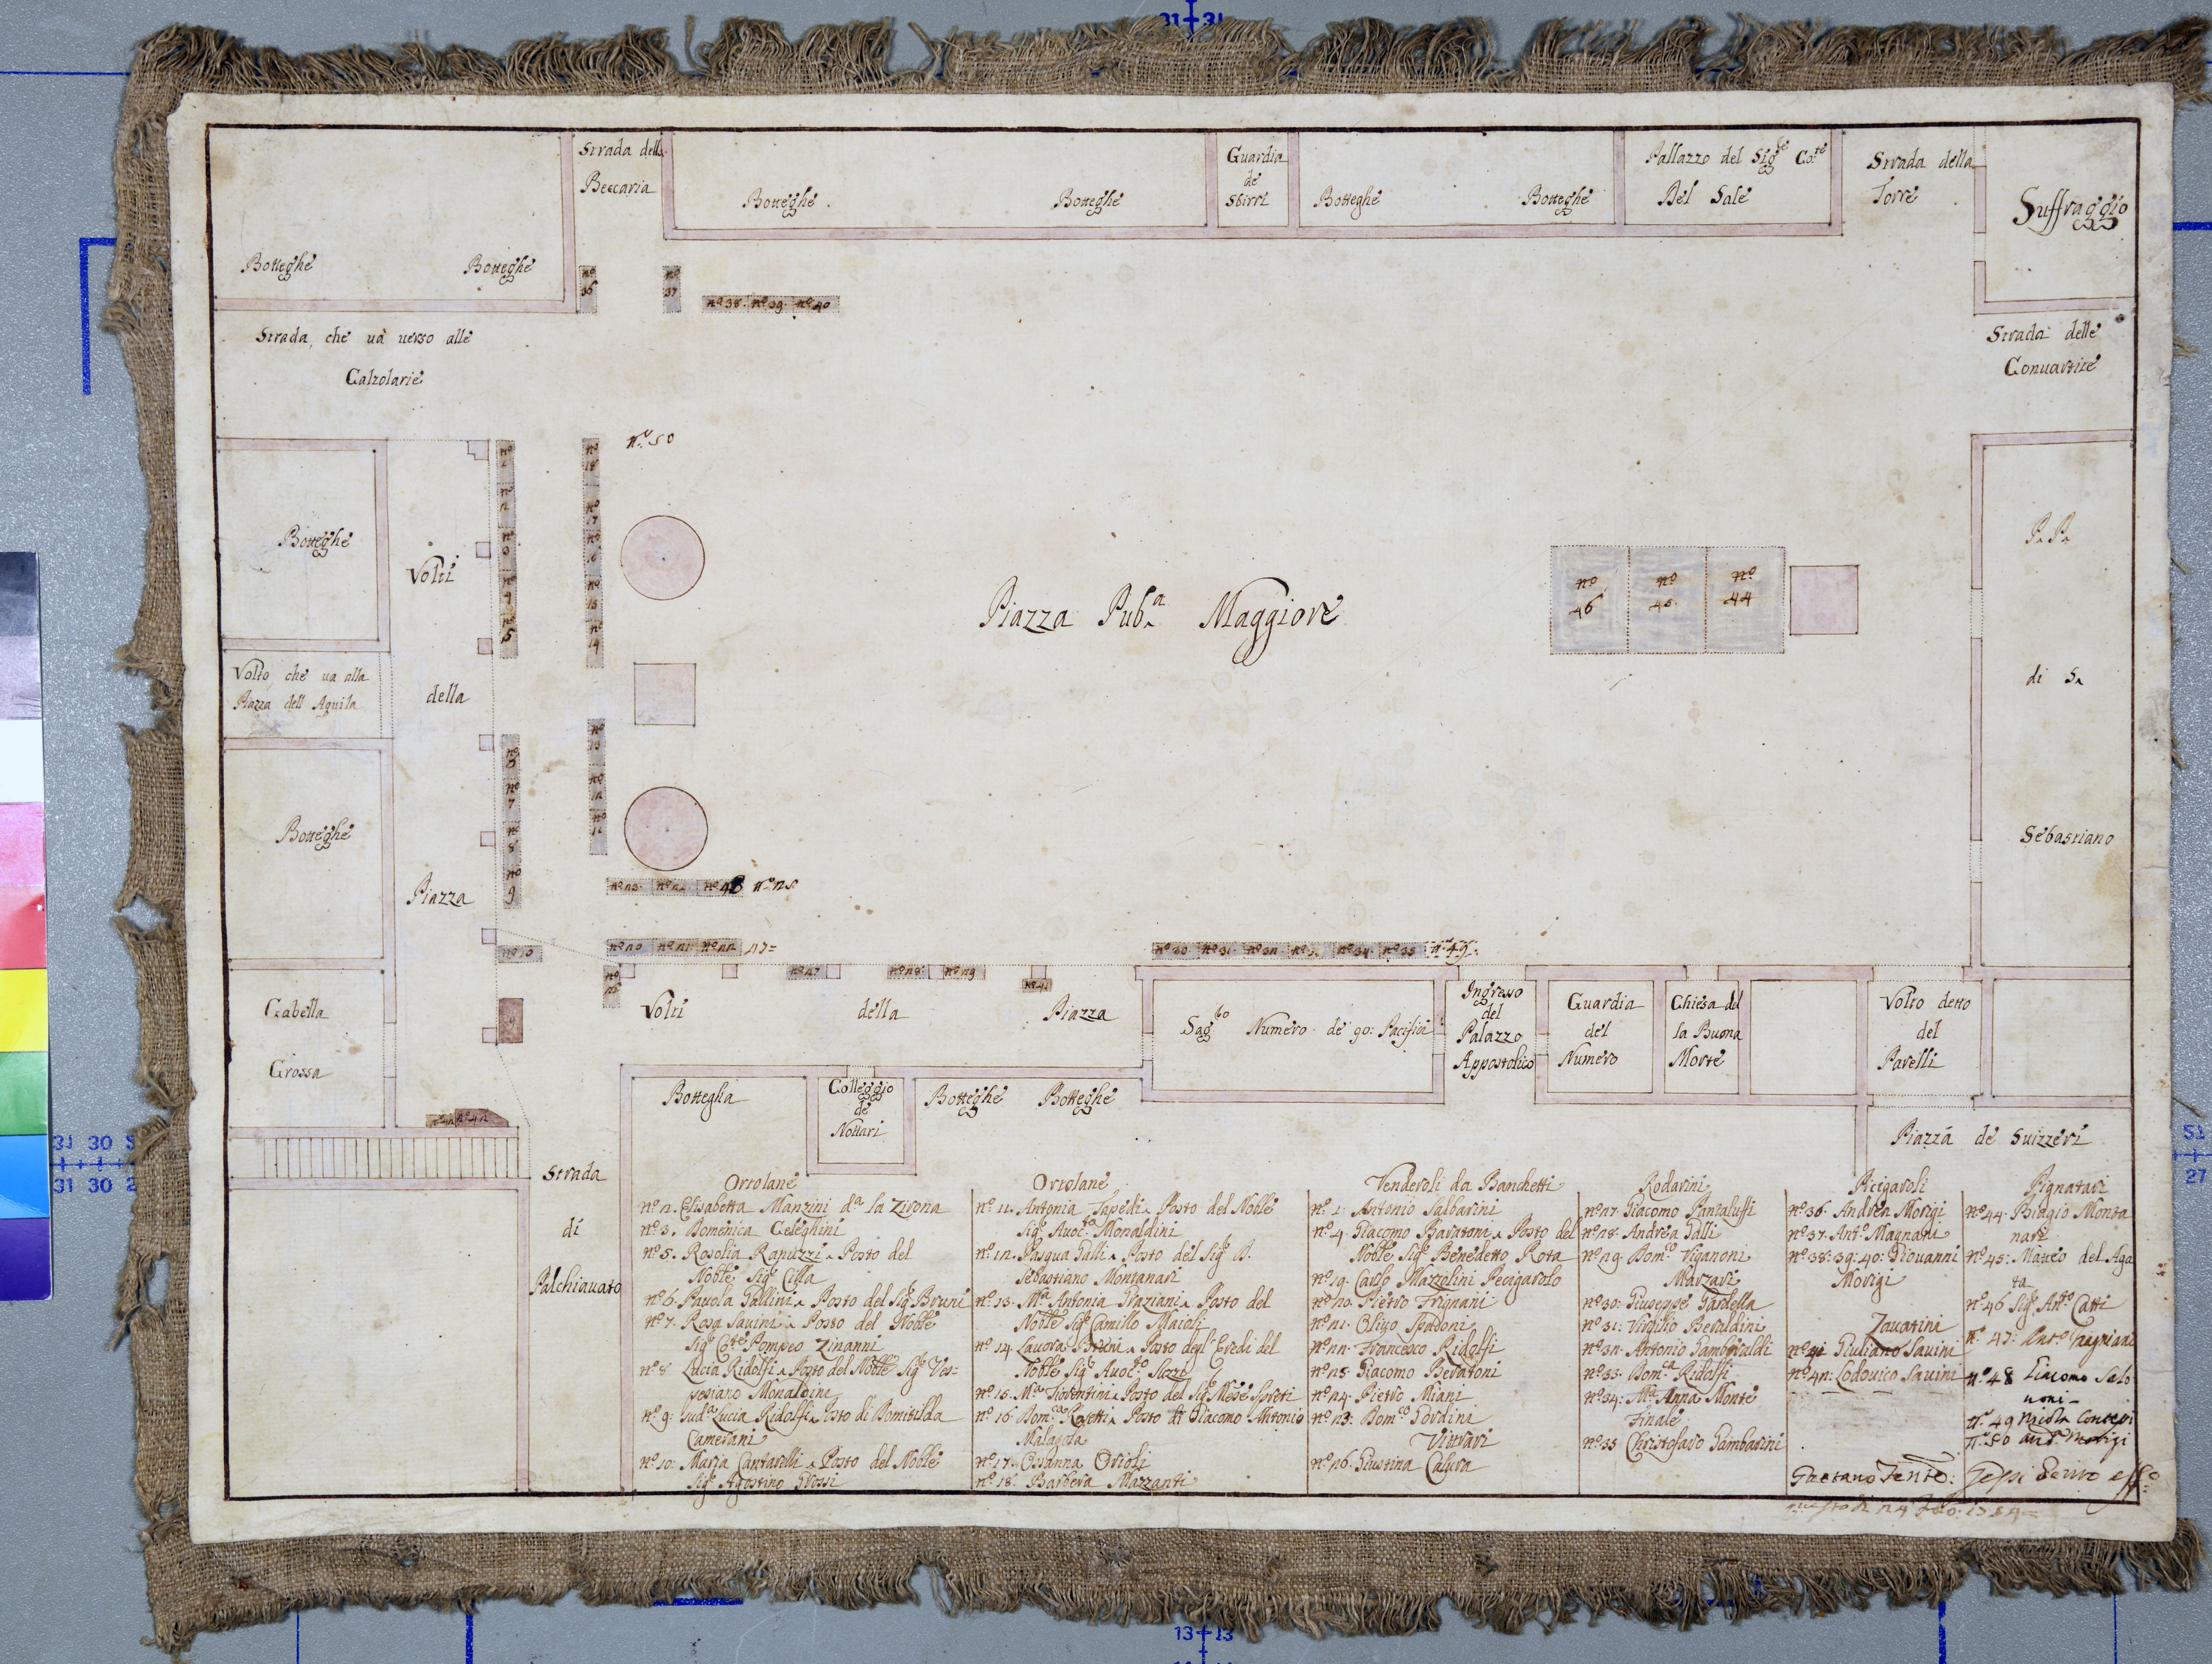 Strada della
Beccaria
Botteghe
Botteghe
Guardia
de
Sbirri
Botteghe
Botteghe
Pallazzo del Sig.re Co.te
Del Sale
Strada della
Torre
Suffraggio
Botteghe
Botteghe
nº 36
nº 37
nº 38. nº 39. nº 40
Strada, che uà uerso alle
Calzolarie
Strada delle
Conuartite
nº 50
nº 1
nº 2
nº 3
nº 4
nº 5
nº 18
nº 17
nº 16
nº 15
nº 14
Botteghe
Volti
della
Piazza
Volto che ua alla
Piazza dell Aquila
Piazza Pub.a Maggiore
nº 46
nº 45
nº 44
P. P.
di S.
Sebastiano
nº 7
nº 8
nº 9
nº 13
nº 12
nº 11
Botteghe
nº 23. nº 24 nº 48 nº 25
nº 10
nº 20 nº 21 nº 22 47=
nº 30 nº 31 nº 32 nº 33 nº 34 nº 35 nº 49
nº 27
nº 28
nº 29
nº 41
Volti
della
Piazza
Gabella
Grossa
nº 42
Numero de 90: Pacifici
Ingresso
del
Palazzo
Appostolico
Guardia
del
Numero
Chiesa del
la Buona
Morte
Volto detto
del
Parelli
Bottegha
Colleggio
de
Nottari
Botteghe
Botteghe
Piazza de Suizzeri
Strada
di
Palchiauato
Ortolane
nº 2. Elisabetta Manzini d.a la Zirona
nº 3. Domenica Celeghini
nº 5. Rosolia Rapuzzi Posto del
Noble Sig.r Cilla
nº 6. Pauola Gallini Posto del Sig.r Bruni
nº 7. Rosa Sauini Posto del Noble
Sig.r Co.te Pompeo Zinanni
nº 8 Lucia Ridolfi Posto del Noble Sig.r Ves-
pesiano Monaldini
nº 9: Sud.a Lucia Ridolfi Posto di Domitilda
Camerani
nº 10: Maria Cantarelli Posto del Noble
Sig.r Agostino Grossi
Ortolane
nº 11. Antonia Tapedi Posto del Noble
Sig.r Auoc.to Monaldini
nº 12. Pasqua Galli Posto del Sig.r D.
Sebastiano Montanari
nº 13. M.a Antonia Graziani Posto del
Noble Sig.r Camillo Maioli
nº 14 Lauora Bruni Posto degl' Eredi del
Noble Sig.r Auoc.to
nº 15. M.a Fiorentini Posto del Sig.r Spreti
nº 16 Dom.ca Rosetti Posto di Giacomo Antonio
Malagola
nº 17. Osanna Orioli
nº 18. Barbera Mazzanti
Venderoli da Banchetti
nº 1: Antonio Salbarini
nº 4. Giacomo Posto del
Noble Sig.r Benedetto Rota
nº 19. Carlo Mazzolini Pecigarolo
nº 20. Pietro Frignani
nº 21: Oliuo Spadoni
nº 22: Francesco Ridolfi
nº 25: Giacomo Beratoni
nº 24: Pietro Miani
nº 23: Dom.co Gordini
Vitrari
nº 26. Giustina Calura
Rodarini
nº 27. Giacomo Pantaluffi
nº 28. Andrea Galli
nº 29. Dom.co Viganoni
Marzari
nº 30: Giuseppe Gardella
nº 31: Virgilio Beraldini
nº 32: Antonio Gamberaldi
nº 33. Dom.ca Ridolfi
nº 34: M.a Anna Monte
Finale
nº 35 Christofaro Gambarini
Picigaroli
nº 36. Andrea Morigi
nº 37. Ant.o Magnani
nº 38: 39: 40: Giouanni
Morigi
Zauatini
nº 41 Giuliano Sauini
nº 42: Lodouico Sauini
Pignatari
nº 44. Biagio Monta
nari
nº 45: Matteo del Aga
ta
nº 46 Sig.r Ant.o Catti
nº 47: Ant.o Magnani
nº 48 Giacomo Salo
moni
nº 49 Nicola
nº 50 And.a Morigi
Gaetano